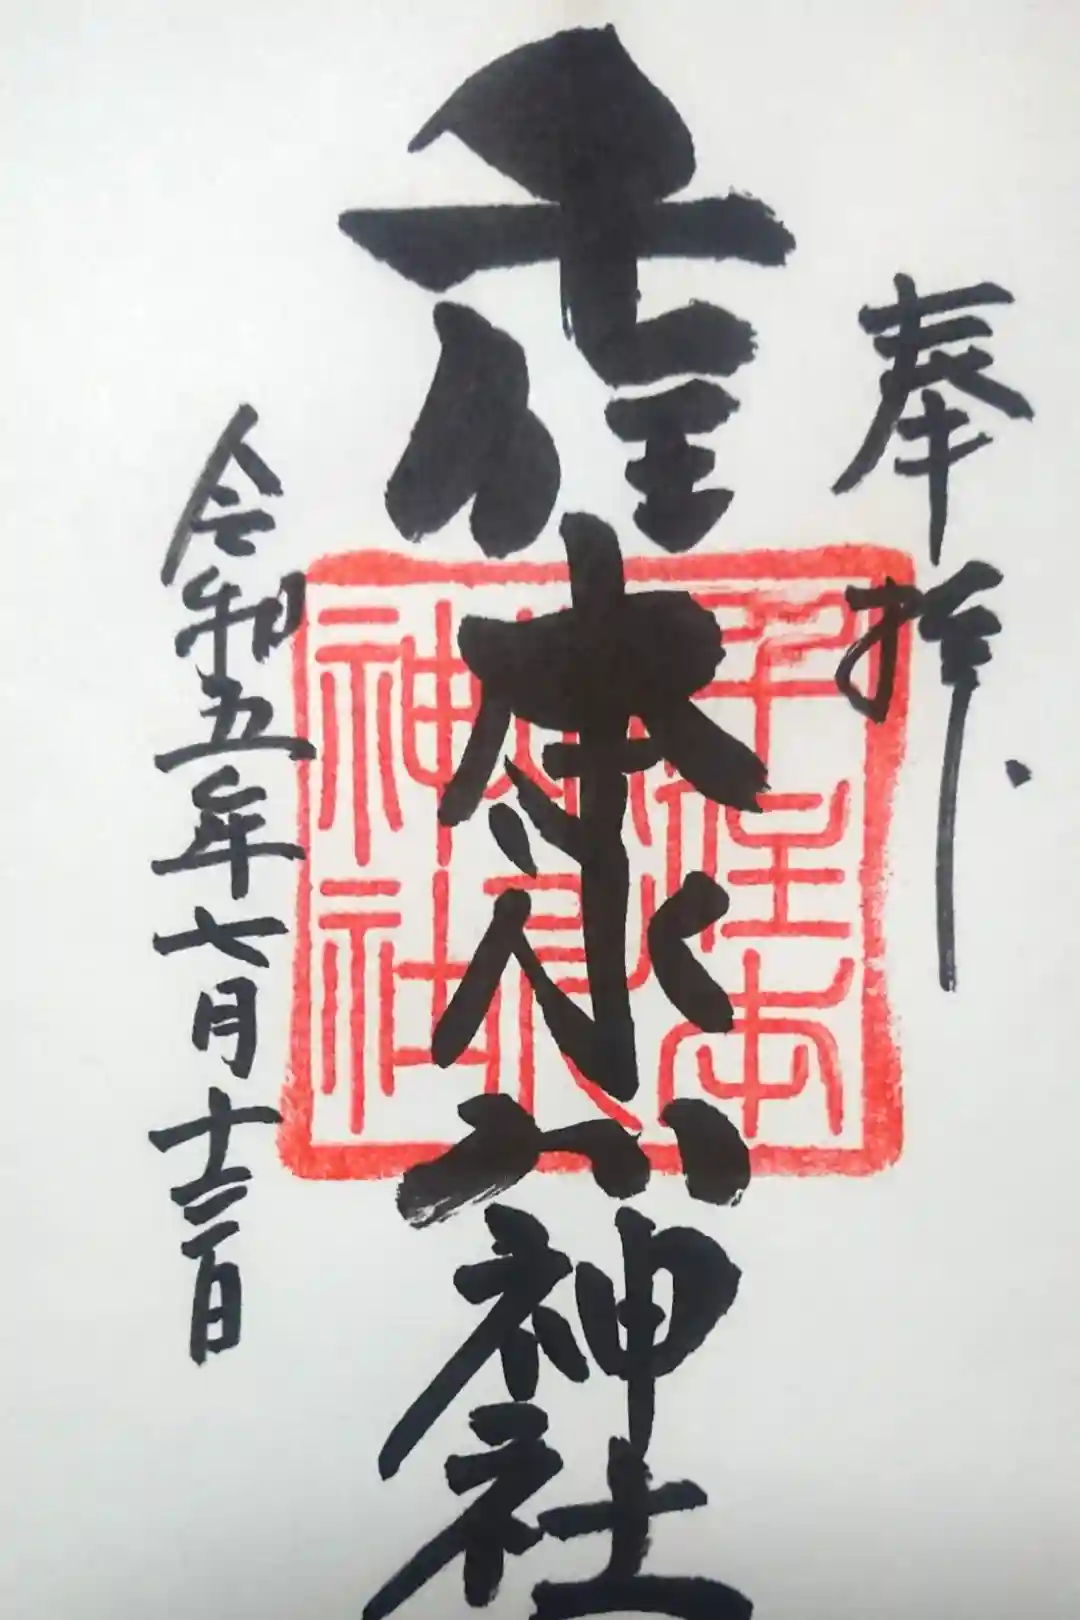 奉拝
千住本氷川神社
令和五年七月十三日
千住本
神社